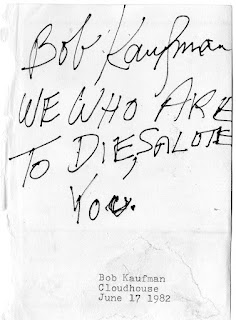 Bob Kaufman
WE WHO ARE
TO DIE, SALUTE
YOU.
Bob Kaufman
Cloudhouse
June 17 1982